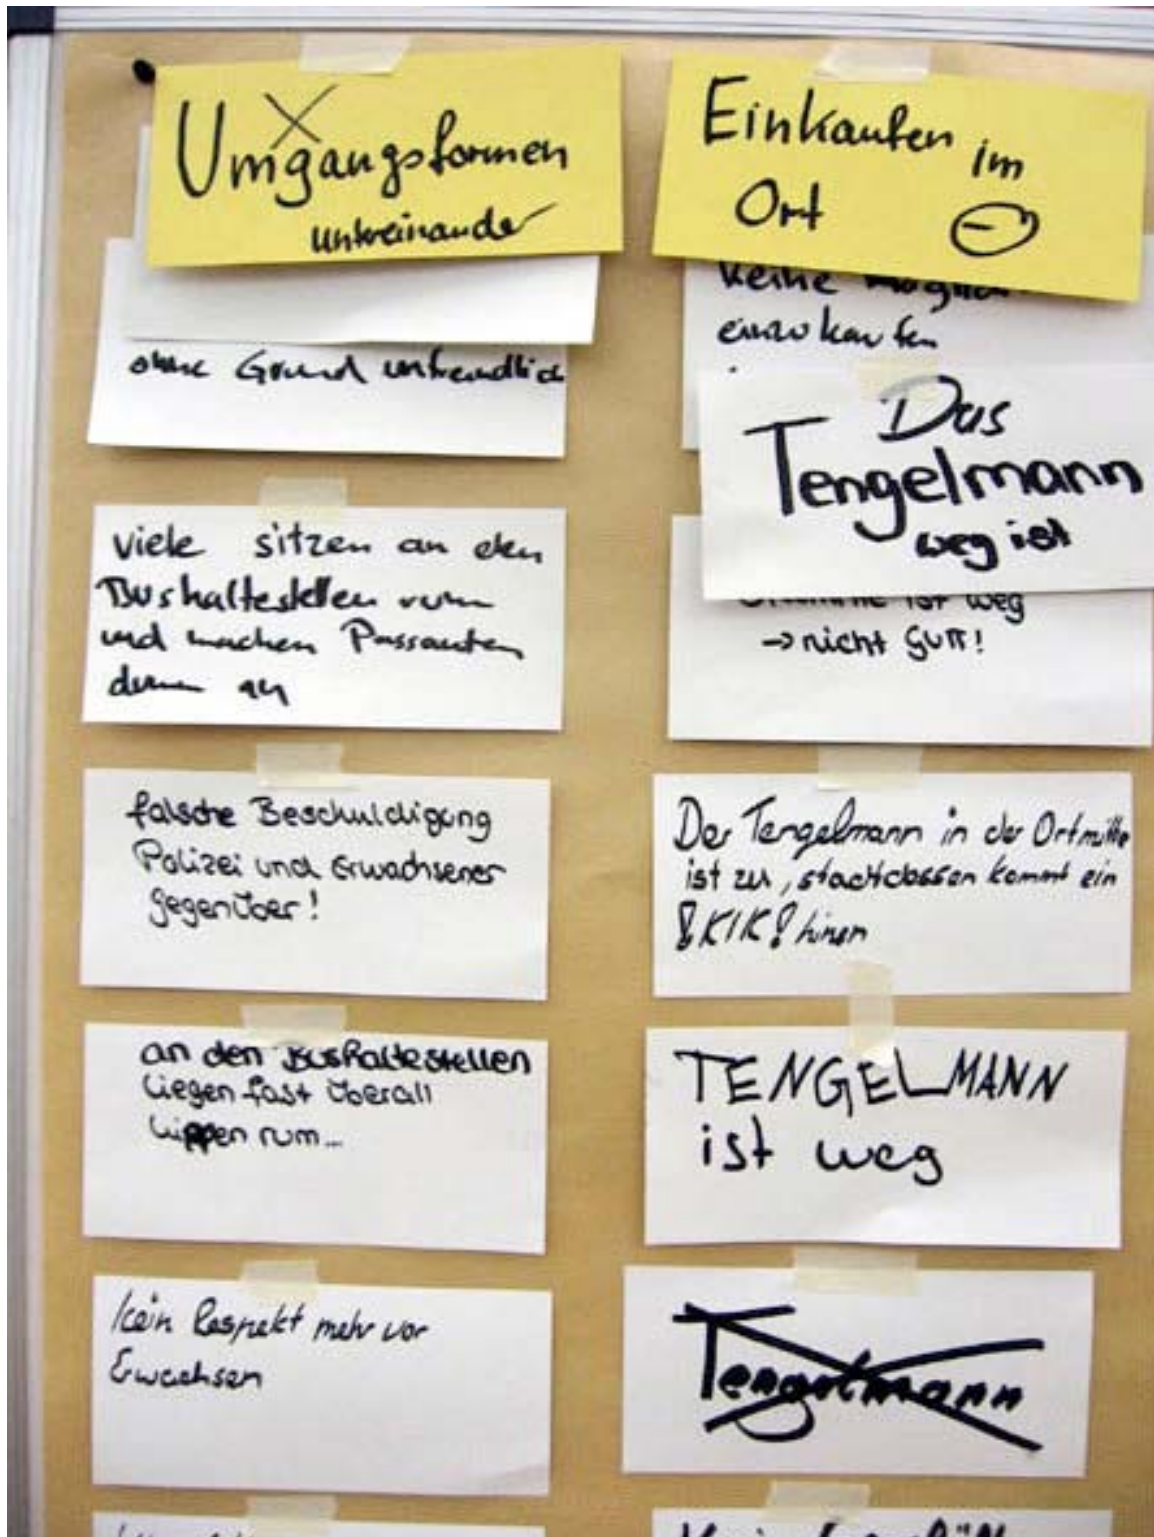 Umgangsformen
untereinander
ohne Grund unfreundlich
viele sitzen an den
Bushaltestellen rum
und machen Passanten
an
falsche Beschuldigung
Polizei und Erwachsener
gegenüber!
an den Bushaltestellen
liegen fast überall
rum...
kein Respekt mehr vor
Erwachsen
Einkaufen im
Ort
keine
einzukaufen
Das
Tengelmann
weg ist
ist weg
→ nicht gut!
Der Tengelmann in der Ortmitte
ist zu, stactdessen kommt ein
!KIK! hinen
TENGELMANN
ist weg
Tengelmann